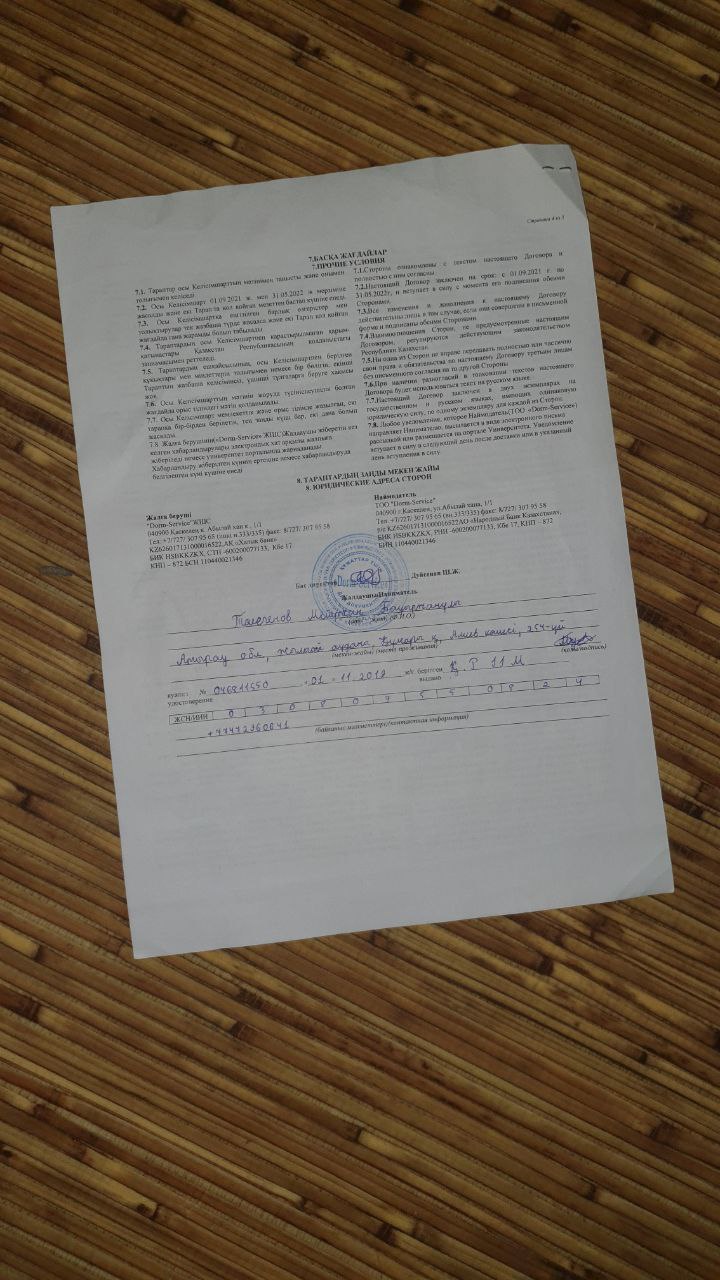 Страница 4 из 5
7.БАСҚА ЖАҒДАЙЛАР
7.ПРОЧИЕ УСЛОВИЯ
7.1. Тараптар осы Келісімшарттың мәтінімен танысты және онымен
толығымен келіседі.
7.2. Осы Келісімшарт 01.09.2021 ж. мен 31.05.2022 ж мерзіміне
жасалды және екі Тарап та қол қойған мезеттен бастап күшіне енеді.
7.3. Осы Келісімшартқа енгізілген барлық өзгерістер мен
толықтырулар тек жазбаша түрде жасалса және екі Тарап қол қойған
жағдайда ғана жарамды болып табылады
7.4. Тараптардың осы Келісімшартпен қарастырылмаған қарым-
қатынастары Қазақстан Республикасының қолданыстағы
заңнамасымен реттеледі.
7.5. Тараптардың ешқайсысының, осы Келісімшартпен берілген
құқықтары мен міндеттерін толығымен немесе бір бөлігін, екінші
Тараптың жазбаша келісімінсіз, үшінші тұлғаларға беруге хақысы
жоқ.
7.6. Осы Келісімшарттың мәтінін жоруда түсініспеушілік болған
жағдайда орыс тіліндегі мәтін қолданылады.
7.7. Осы Келісімшарт мемлекеттік және орыс тілінде жазылған, екі
тарапқа бір-бірден берілетін, тең заңды күші бар, екі дана болып
жасалды.
7.8. Жалға берушінің(«Dorm-Service» ЖШС)Жалдаушы жіберетін кез
келген хабарландырулары электрондық хат арқылы жалпыға
жіберіледі немесе университет порталында жарияланады.
Хабарландыру жіберілген күннің ертеңіне немесе хабарландыруда
белгіленген күні күшіне енеді
7.1.Стороны ознакомлены с текстом настоящего Договора и
полностью с ним согласны
7.2.Настоящий Договор заключен на срок: с 01.09.2021 г. по
31.05.2022г, и вступает в силу с момента его подписания обеими
Сторонами.
7.3.Все изменения и дополнения к настоящему Договору
действительны лишь в том случае, если они совершены в письменной
форме и подписаны обеими Сторонами.
7.4.Взаимоотношения Сторон, не предусмотренные настоящим
Договором, регулируются действующим законодательством
Республики Казахстан.
7.5.Ни одна из Сторон не вправе передавать полностью или частично
свои права и обязательства по настоящему Договору третьим лицам
без письменного согласия на то другой Стороны.
7.6.При наличии разногласий в толковании текста настоящего
Договора будет использоваться текст на русском языке.
7.7.Настоящий Договор заключен в двух экземплярах на
государственном и русском языках, имеющих одинаковую
юридическую силу, по одному экземпляру для каждой из Сторон.
7.8. Любое уведомление, которое Наймодатель(ТОО «Dorm-Service»)
направляет Нанимателю, высылается в виде электронного письма
рассылкой или размещается на портале Университета. Уведомление
вступает в силу в следующий день после доставки или в указанный
день вступления в силу.
8. ТАРАПТАРДЫҢ ЗАҢДЫ МЕКЕН ЖАЙЫ
8. ЮРИДИЧЕСКИЕ АДРЕСА СТОРОН
Жалға беруші
"Dorm-Service"ЖШС
040900 Қаскелең қ, Абылай хан к , 1/1
Тел.:+7/727/ 307 95 65 (ішкі н.333/335) факс: 8/727/ 307 95 58
KZ626017131000016522,АҚ «Халық банк»
БИК HSBKKZKX, СТН -600200077133, Кбе 17
КНП – 872 БСН 110440021346
Наймодатель
ТОО "Dorm-Service"
040900 г.Каскелен, ул.Абылай хана, 1/1
Тел. +7/727/ 307 95 65 (вн.333/335) факс: 8/727/ 307 95 58
р/с KZ626017131000016522АО «Народный Банк Казахстана»,
БИК HSBKKZKX, РНН -600200077133, Кбе 17, КНП – 872
БИН 110440021346
Бас директор
Дуйсенов Н.Ж.
Dorm-Service
Жалдаушы/Наниматель
Бауыржанұлы
(аты - жөні/ Ф.И.О.)
Атырау обл, Жылыой ауданы,
(мекен-жайы) (место проживания)
(қолы/подпись)
куәлігі № 046811650 . 01 . 11.2019 ж/г. берілген Қ. Р ІІМ
удостоверение выдано
ЖСН/ИИН 0 3 0 8 0 9 5 5 0 8 2 4
+77472960641
(байланыс мәліметтері)/контактная информация)